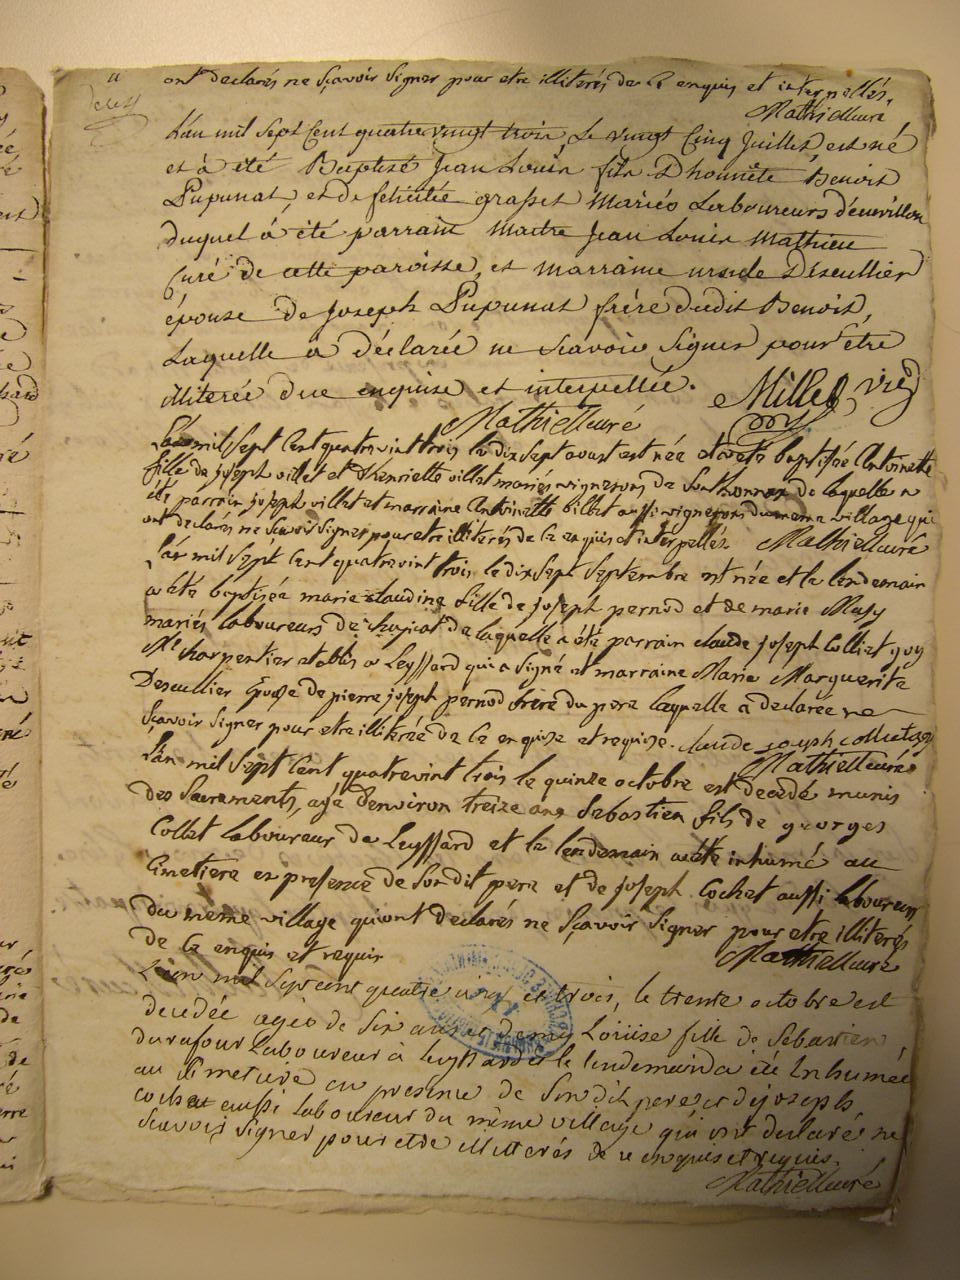 ont declarés ne sçavoir signer pour etre illiterés de ce enquis et interpellés.
Mathieu curé
L'an mil sept cent quatre vingt trois, le vingt cinq juillet est né
et à été Baptisé Jean Louis fils D'honnête Benoit
Pupunat, et de félicitée grasset mariés Laboureurs
duquel à été parrain maitre Jean Louis Mathieu
curé de cette paroisse, et marraine ursule Descullier
épouse de joseph Pupunat frère dudit Benoit,
Laquelle à déclarée ne scavoir signer pour être
illiterée due enquise et interpellée. Millet vic
Mathieu curé
L'an mil sept cent quatrevint trois le dix sept aoust est née et a été baptisée Antoinette
fille de joseph villet et d'henriette villet mariés vignerons de de laquelle a
été parrain joseph villet et marraine Antoinette billet aussi vignerons du meme village qui
ont declarés ne scavoir signer pour etre illiterés de ce enquis et interpellés Mathieu curé
L'an mil sept cent quatrevint trois le dix sept septembre est née et le lendemain
a été baptisée marie claudine fille de joseph pernod et de marie
mariés laboureurs de de laquelle a été parrain claude joseph Colliet
Mt charpentier etablis a Leyssard qui a signé et marraine Marie Marguerite
Descullier épouse de pierre joseph pernod frere du pere laquelle a declarée ne
sçavoir signer pour etre illiterée de ce enquise et requise. claude joseph
Mathieu curé
L'an mil sept cent quatrevint trois le quinze octobre est decedé munis
des Sacrements, agé d'environ treize ans Sebastien fils de georges
Collet laboureur de Leyssard et le lendemain a été inhumé au
Cimetiere en presence de son dit pere et de joseph Cochet aussi laboureur
du meme village qui ont declarés ne sçavoir signer pour etre illiterés
de ce enquis et requis Mathieu curé
L'an mil sept cent quatre vingt et trois, le trente octobre est
decedée agée de six ans et demy Louise fille de Sebastien
durafour Laboureur à Leyssard et le lendemain a été inhumée
au cimetiere en presence de son dit pere et de joseph
cochet aussi Laboureur du même village qui ont declaré ne
scavoir signer pour etre illiterés de ce enquis et requis.
Mathieu curé